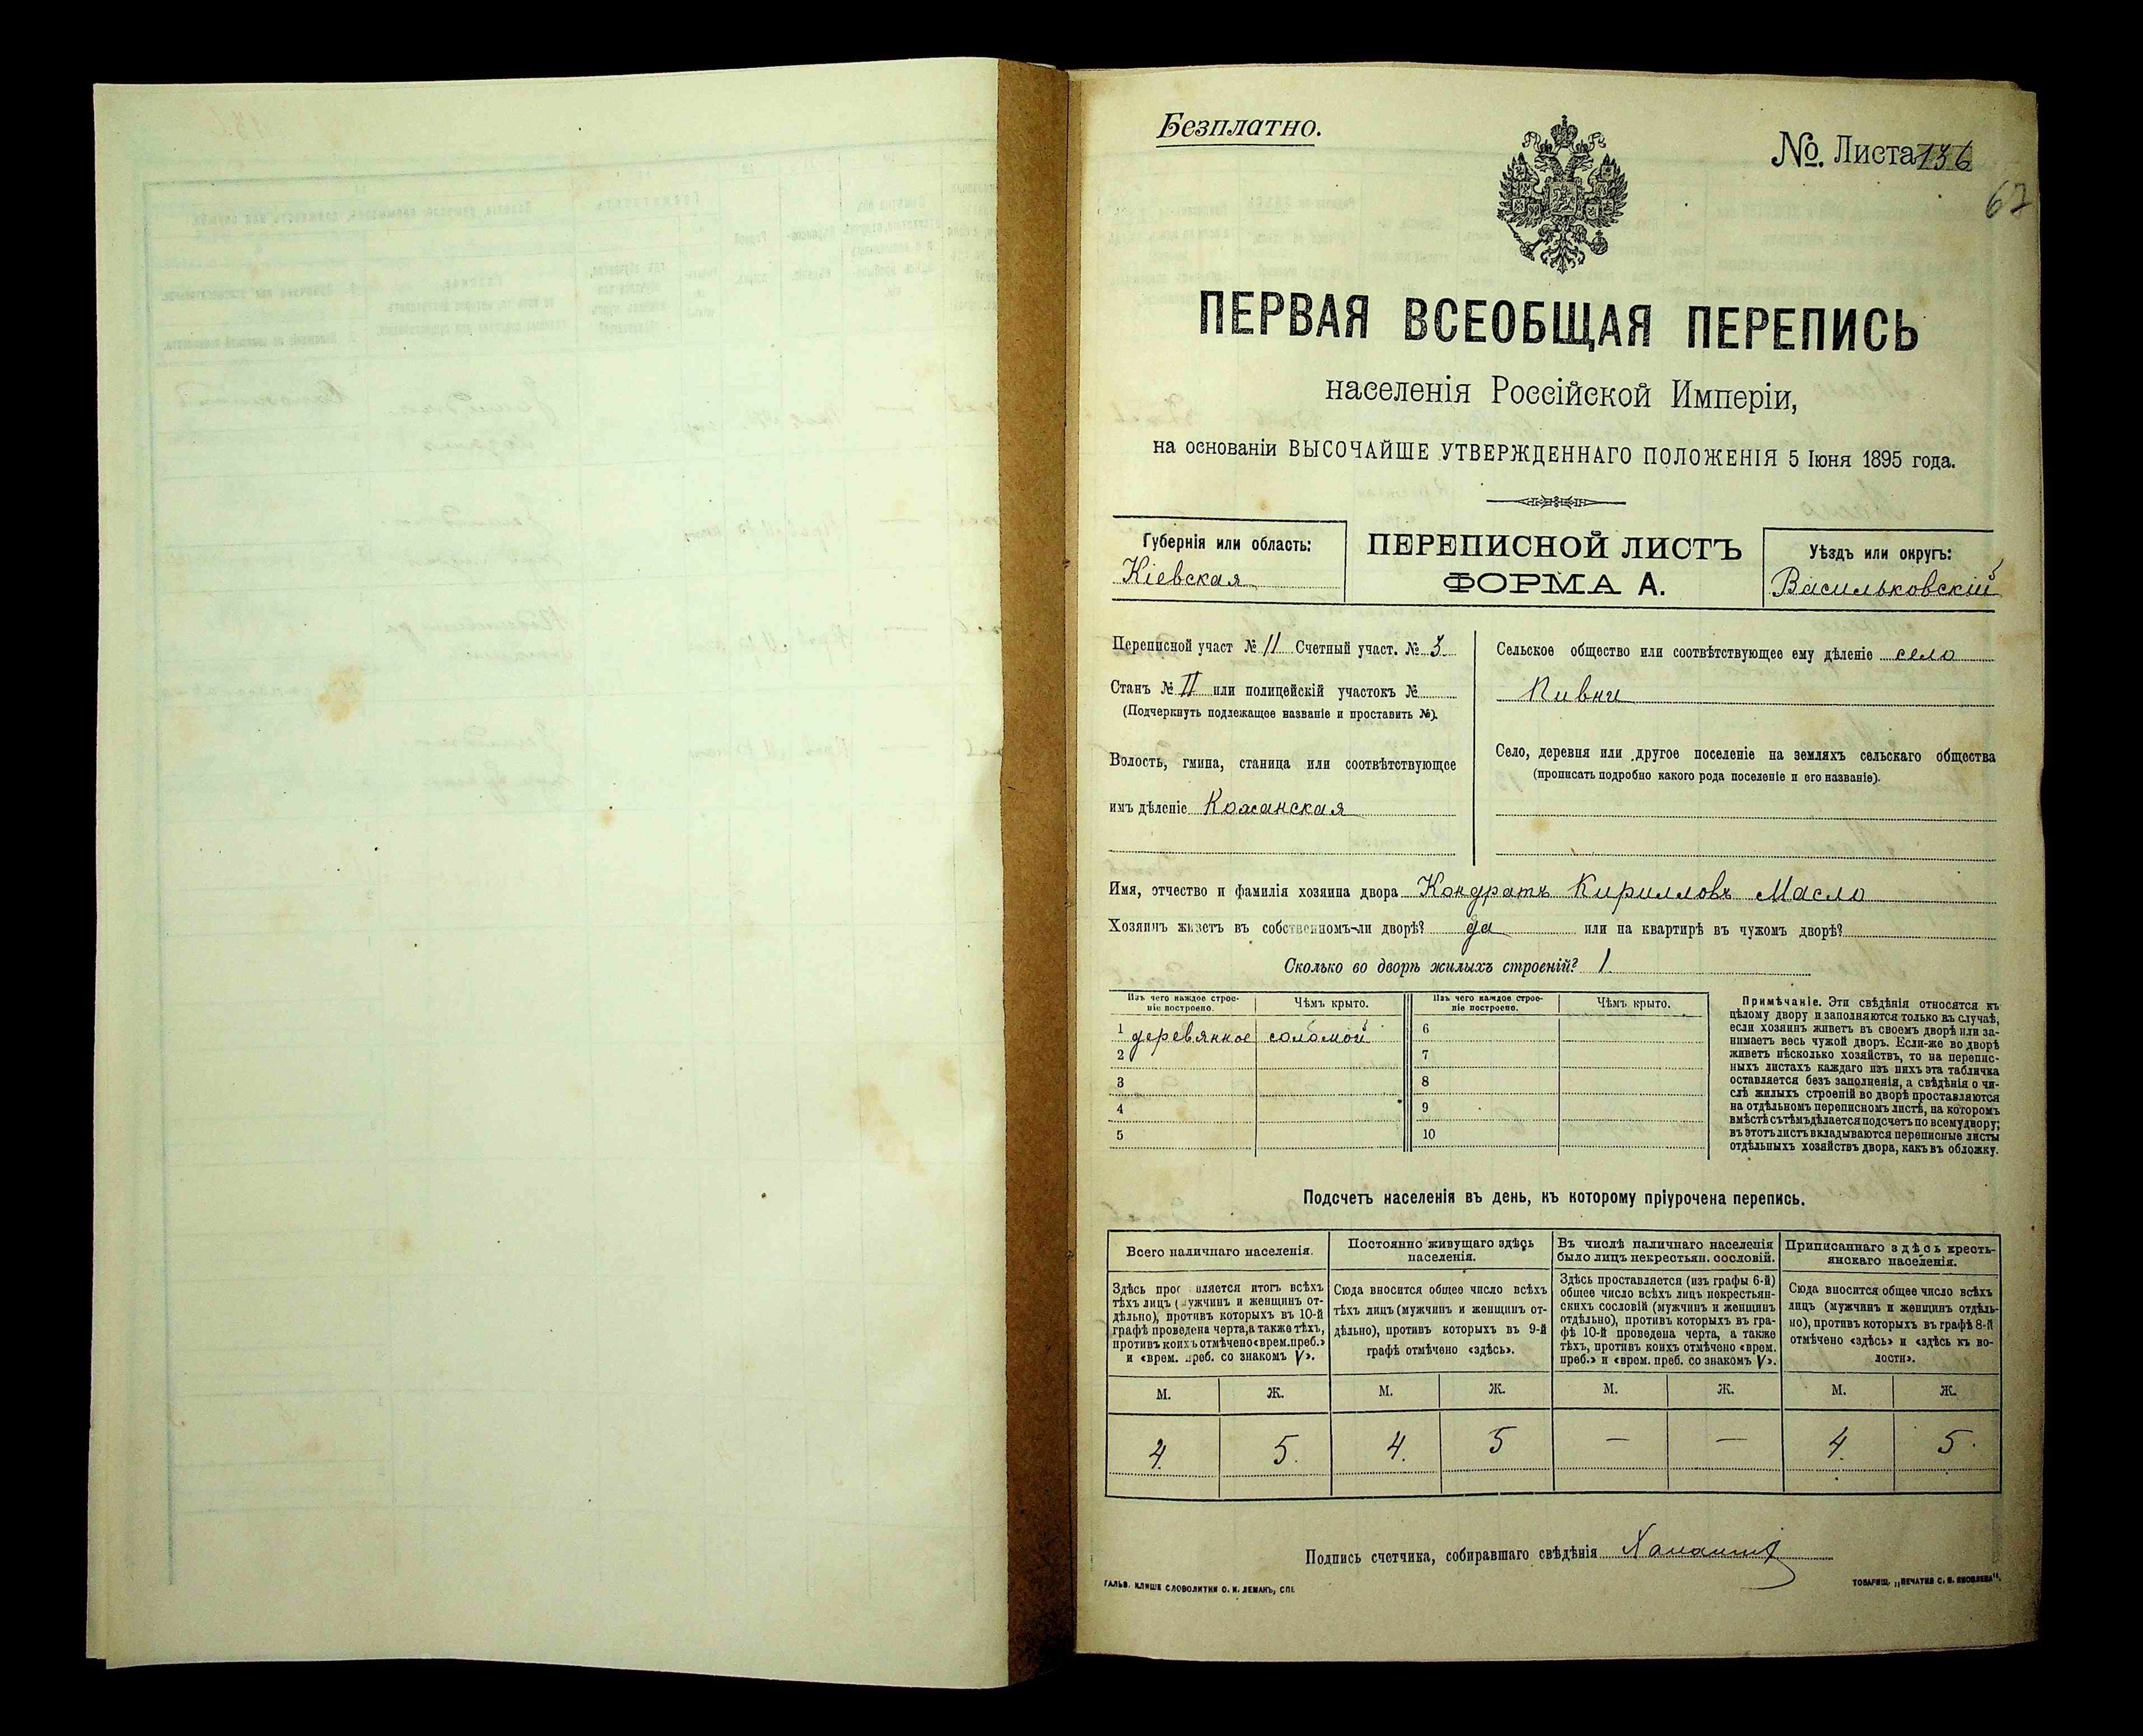 Безплатно.
№ Листа 136
62
ПЕРВАЯ ВСЕОБЩАЯ ПЕРЕПИСЬ
населенія Россійской Имперіи,
на основаніи ВЫСОЧАЙШЕ УТВЕРЖДЕННАГО ПОЛОЖЕНІЯ 5 Іюня 1895 года.
Губернія или область:
Кіевская
ПЕРЕПИСНОЙ ЛИСТЪ
ФОРМА А.
Уѣздъ или округъ:
Васильковскій
Переписной участ № 11 Счетный участ. № 3
Станъ № II или полицейскій участокъ №
(Подчеркнуть подлежащее названіе и проставить №).
Волость, гмина, станица или соотвѣтствующее
имъ дѣленіе Кожанская
Сельское общество или соотвѣтствующее ему дѣленіе село
Пивни
Село, деревня или другое поселеніе на земляхъ сельскаго общества
(прописать подробно какого рода поселеніе и его названіе).
Имя, отчество и фамилія хозяина двора Кондратъ Кирилловъ Масло
Хозяинъ живетъ въ собственномъ-ли дворѣ? да или на квартирѣ въ чужомъ дворѣ?
Сколько во дворѣ жилыхъ строеній? 1
Изъ чего каждое строе-
ніе построено.
Чѣмъ крыто.
Изъ чего каждое строе-
ніе построено.
Чѣмъ крыто.
1 деревянное соломой 6
2 7
3 8
4 9
5 10
Примѣчаніе. Эти свѣдѣнія относятся къ
цѣлому двору и заполняются только въ случаѣ,
если хозяинъ живетъ въ своемъ дворѣ или за-
нимаетъ весь чужой дворъ. Если-же во дворѣ
живетъ нѣсколько хозяйствъ, то на перепис-
ныхъ листахъ каждаго изъ нихъ эта табличка
оставляется безъ заполненія, а свѣдѣнія о чи-
слѣ жилыхъ строеній во дворѣ проставляются
на отдѣльномъ переписномъ листѣ, на которомъ
вмѣстѣ съ тѣмъ дѣлается подсчетъ по всему двору;
въ этотъ листъ вкладываются переписные листы
отдѣльныхъ хозяйствъ двора, какъ въ обложку.
Подсчетъ населенія въ день, къ которому пріурочена перепись.
Всего наличнаго населенія.
Здѣсь проставляется итогъ всѣхъ
тѣхъ лицъ (мужчинъ и женщинъ от-
дѣльно), противъ которыхъ въ 10-й
графѣ проведена черта, а также тѣхъ,
противъ коихъ отмѣчено «врем. преб.»
и «врем. преб. со знакомъ V».
Постоянно живущаго здѣсь
населенія.
Сюда вносится общее число всѣхъ
тѣхъ лицъ (мужчинъ и женщинъ от-
дѣльно), противъ которыхъ въ 9-й
графѣ отмѣчено «здѣсь».
Въ числѣ наличнаго населенія
было лицъ некрестьян. сословій.
Здѣсь проставляется (изъ графы 6-й)
общее число всѣхъ лицъ некрестьян-
скихъ сословій (мужчинъ и женщинъ
отдѣльно), противъ которыхъ въ гра-
фѣ 10-й проведена черта, а также
тѣхъ, противъ коихъ отмѣчено «врем.
преб.» и «врем. преб. со знакомъ V».
Приписаннаго здѣсь кресть-
янскаго населенія.
Сюда вносится общее число всѣхъ
лицъ (мужчинъ и женщинъ отдѣль-
но), противъ которыхъ въ графѣ 8-й
отмѣчено «здѣсь» и «здѣсь къ во-
лости».
М. Ж. М. Ж. М. Ж. М. Ж.
4. 5. 4. 5 — — 4. 5.
Подпись счетчика, собиравшаго свѣдѣнія
ГАЛЬВ. КЛИШЕ СЛОВОЛИТНИ О. И. ЛЕМАНЪ, СПБ.
ТОВАРИЩ. „ПЕЧАТНЯ С. П. ЯКОВЛЕВА“.